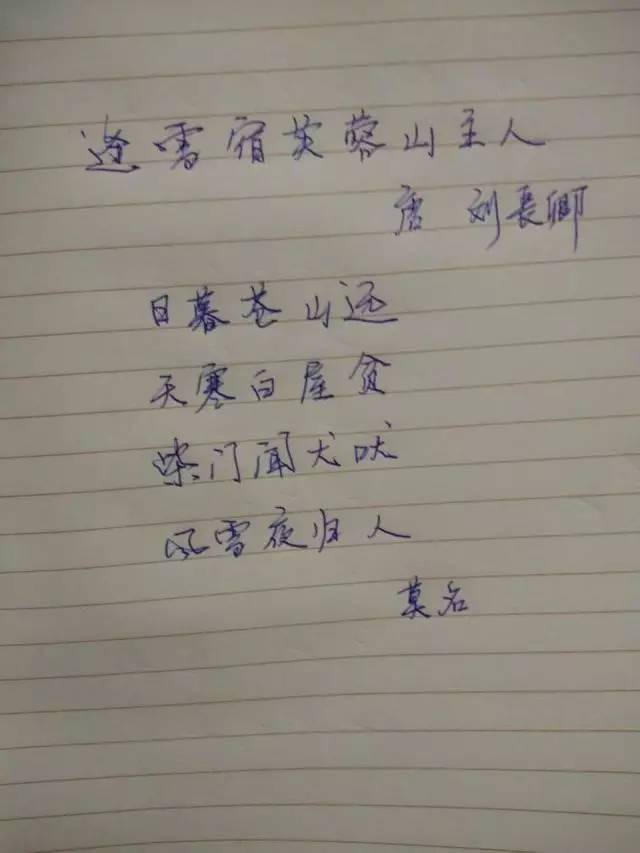 逢雪宿芙蓉山主人
唐 刘長卿
日暮苍山远
天寒白屋贫
柴门闻犬吠
风雪夜归人
莫名